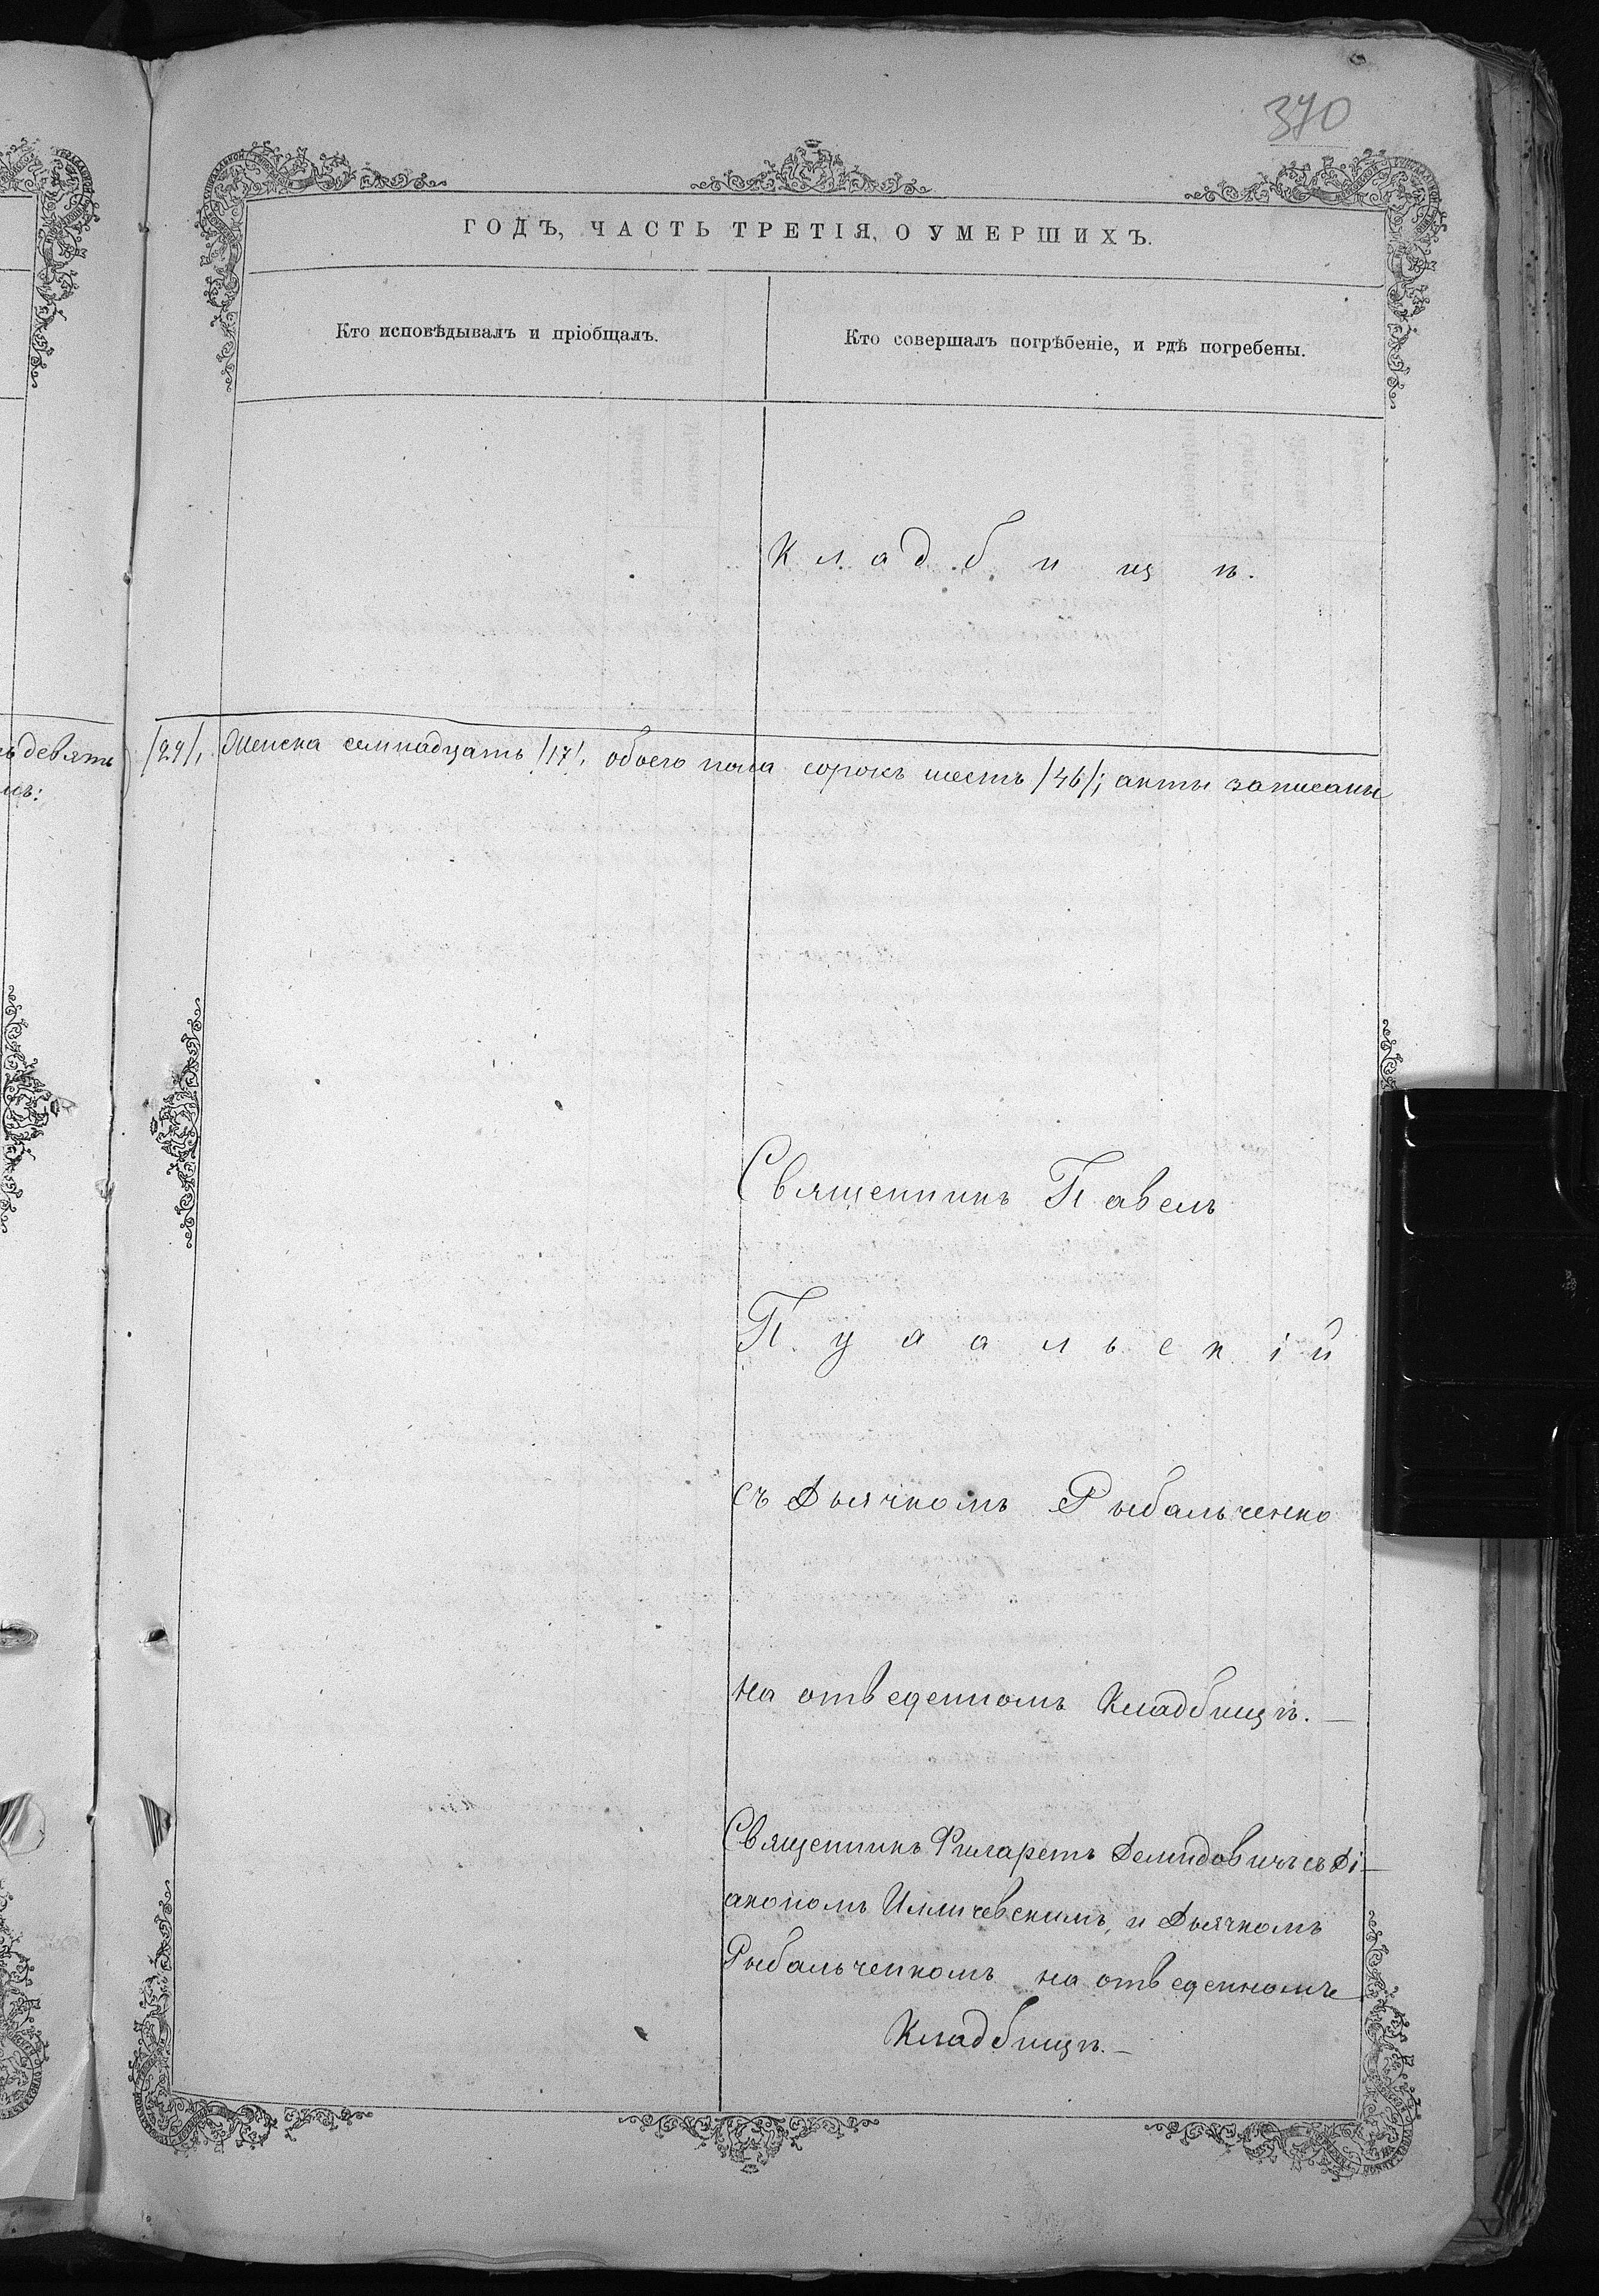 370
ГОДЪ, ЧАСТЬ ТРЕТІЯ, О УМЕРШИХЪ.
Кто исповѣдывалъ и пріобщалъ.
Кто совершалъ погрѣбеніе, и гдѣ погребены.
Кладбищѣ.
девять /29/, Женска семнадцать /17/, обоего пола сорокъ шесть /46/; акты записаны
Священникъ Павелъ
съ Дьячкомъ Рыбальченко
на отведенномъ Кладбищѣ. —
Священникъ Филаретъ Демидовичъ съ Ді-
акономъ Илличевскимъ, и Дьячкомъ
Рыбальченкомъ на отведенномъ
Кладбищѣ. —